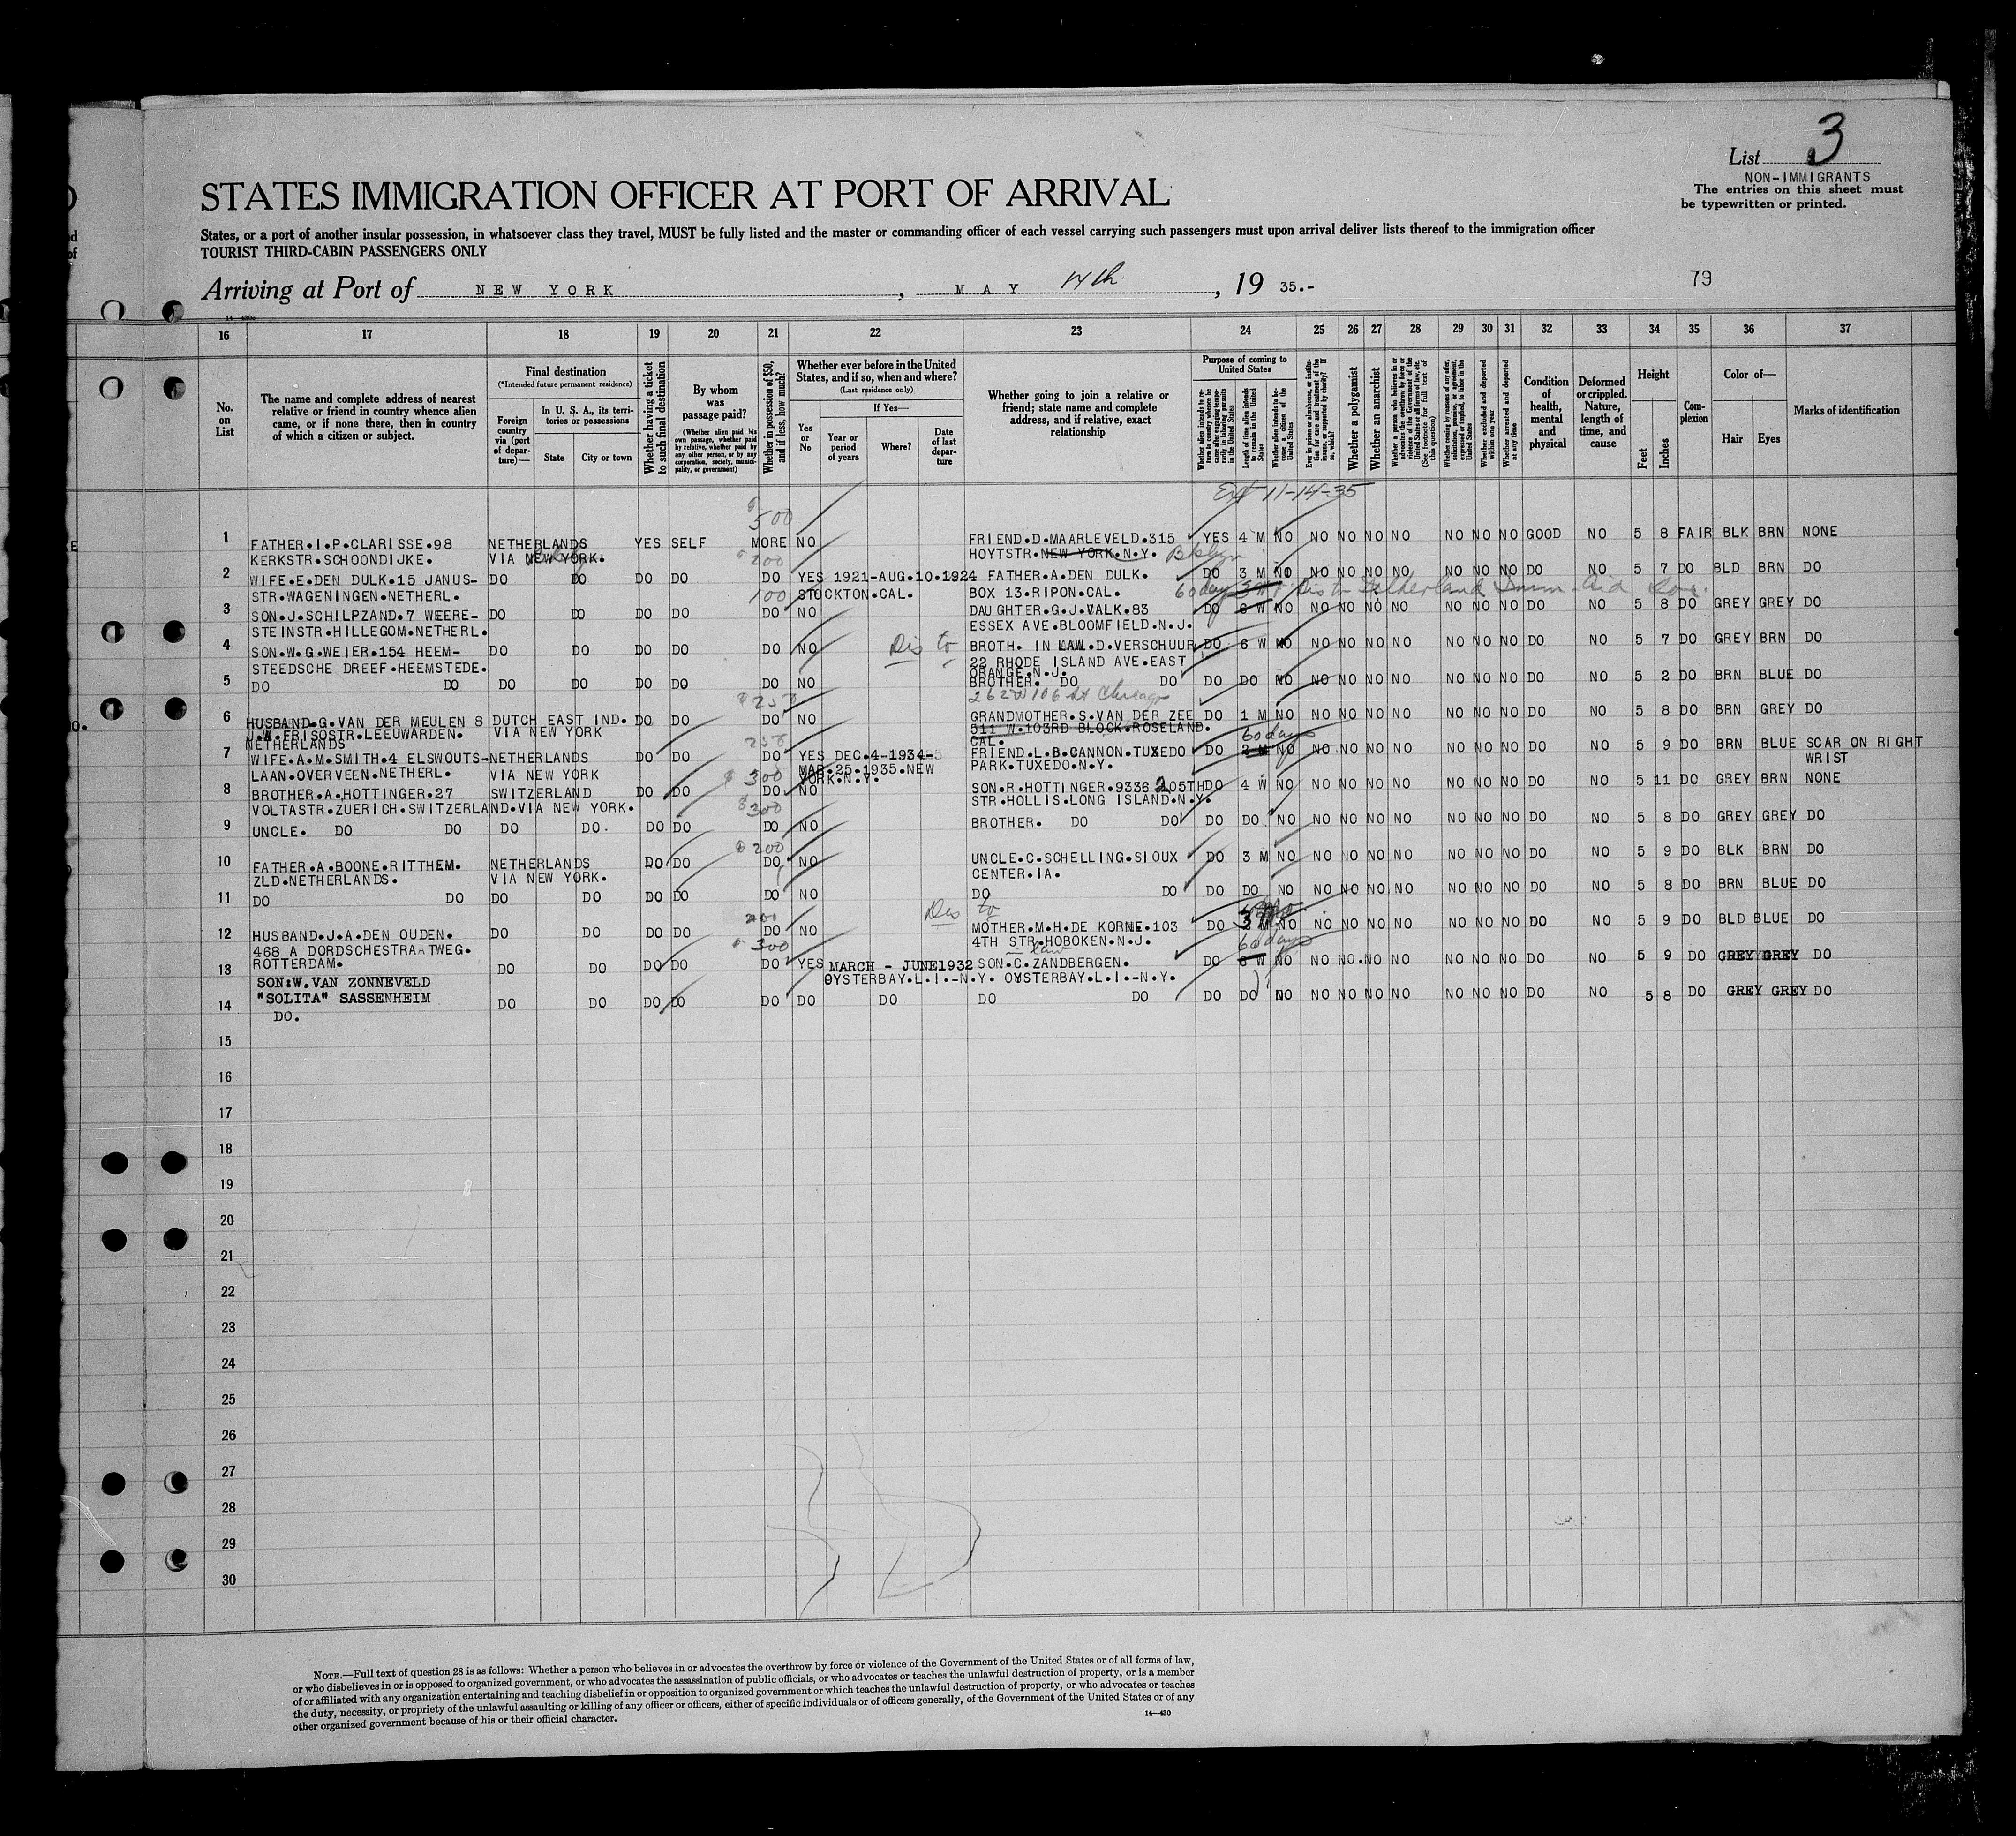 List 3
NON-IMMIGRANTS
The entries on this sheet must
be typewritten or printed.
STATES IMMIGRATION OFFICER AT PORT OF ARRIVAL
States, or a port of another insular possession, in whatsoever class they travel, MUST be fully listed and the master or commanding officer of each vessel carrying such passengers must upon arrival deliver lists thereof to the immigration officer
TOURIST THIRD-CABIN PASSENGERS ONLY
Arriving at Port of NEW YORK, MAY 14th, 19 35.-
79
16 17 18 19 20 21 22 23 24 25 26 27 28 29 30 31 32 33 34 35 36 37
No. on List
The name and complete address of nearest relative or friend in country whence alien came, or if none there, then in country of which a citizen or subject.
Final destination
(*Intended future permanent residence)
Foreign country via (port of departure)—
In U. S. A., its territories or possessions
State
City or town
Whether having a ticket to such final destination
By whom was passage paid?
(Whether alien paid his own passage, whether paid by relative, whether paid by any other person, or by any corporation, society, municipality, or government)
Whether in possession of $50, and if less, how much?
Whether ever before in the United States, and if so, when and where?
(Last residence only)
If Yes—
Yes or No
Year or period of years
Where?
Date of last departure
Whether going to join a relative or friend; state name and complete address, and if relative, exact relationship
Purpose of coming to United States
Whether a polygamist
Whether an anarchist
Condition of health, mental and physical
Deformed or crippled. Nature, length of time, and cause
Height
Feet
Inches
Complexion
Color of—
Hair
Eyes
Marks of identification
Ext 11-14-35
$ 500
1 FATHER.I.P.CLARISSE.98 NETHERLANDS YES SELF MORE NO FRIEND.D.MAARLEVELD.315 YES 4 M NO NO NO NO NO NO NO NO GOOD NO 5 8 FAIR BLK BRN NONE
KERKSTR.SCHOONDIJKE. VIA NEW YORK. $ 200 HOYTSTR.NEW YORK.N.Y. Bklyn
2 WIFE.E.DEN DULK.15 JANUS- DO DO DO DO DO YES 1921-AUG.10.1924 FATHER.A.DEN DULK. DO 3 M NO NO NO NO NO NO NO NO DO NO 5 7 DO BLD BRN DO
STR.WAGENINGEN.NETHERL. 100 STOCKTON.CAL. BOX 13.RIPON.CAL. 60 days
3 SON.J.SCHILPZAND.7 WEERE- DO DO DO DO DO NO DAUGHTER.G.J.VALK.83 DO 8 W NO NO NO NO NO NO NO NO DO NO 5 8 DO GREY GREY DO
STEINSTR.HILLEGOM.NETHERL. ESSEX AVE.BLOOMFIELD.N.J.
4 SON.W.G.WEIER.154 HEEM- DO DO DO DO DO NO Dis to BROTH. IN LAW.D.VERSCHUUR DO 6 W NO NO NO NO NO NO NO NO DO NO 5 7 DO GREY BRN DO
STEEDSCHE DREEF.HEEMSTEDE. 22 RHODE ISLAND AVE.EAST
ORANGE.N.J.
5 DO DO DO DO DO DO DO NO BROTHER. DO DO DO DO NO NO NO NO NO NO NO NO DO NO 5 2 DO BRN BLUE DO
$ 250 262 W 106 St Chicago
6 HUSBAND.G.VAN DER MEULEN 8 DUTCH EAST IND. DO DO DO NO GRANDMOTHER.S.VAN DER ZEE DO 1 M NO NO NO NO NO NO NO NO DO NO 5 8 DO BRN GREY DO
J.W.FRISOSTR.LEEUWARDEN. VIA NEW YORK 511 W.103RD BLOCK.ROSELAND.
NETHERLANDS 250 CAL. 60 days
7 WIFE.A.M.SMITH.4 ELSWOUTS- NETHERLANDS DO DO DO YES DEC.4-1934- FRIEND.L.B.CANNON.TUXEDO DO 2 M NO NO NO NO NO NO NO NO DO NO 5 9 DO BRN BLUE SCAR ON RIGHT
LAAN.OVERVEEN.NETHERL. VIA NEW YORK MAR.25.1935.NEW PARK.TUXEDO.N.Y. WRIST
$ 300 YORK.N.Y.
8 BROTHER.A.HOTTINGER.27 SWITZERLAND DO DO DO NO SON.R.HOTTINGER.9336 205TH DO 4 W NO NO NO NO NO NO NO NO DO NO 5 11 DO GREY BRN NONE
VOLTASTR.ZUERICH.SWITZERLAND.VIA NEW YORK. $ 300 STR.HOLLIS.LONG ISLAND.N.Y.
9 UNCLE. DO DO DO DO. DO DO DO NO BROTHER. DO DO DO DO NO NO NO NO NO NO NO NO DO NO 5 8 DO GREY GREY DO
$ 200
10 FATHER.A.BOONE.RITTHEM. NETHERLANDS DO DO DO NO UNCLE.C.SCHELLING.SIOUX DO 3 M NO NO NO NO NO NO NO NO DO NO 5 9 DO BLK BRN DO
ZLD.NETHERLANDS. VIA NEW YORK. CENTER.IA.
11 DO DO DO DO DO DO DO NO DO DO DO DO NO NO NO NO NO NO NO NO DO NO 5 8 DO BRN BLUE DO
200 Dis to
12 HUSBAND.J.A.DEN OUDEN. DO DO DO DO DO NO MOTHER.M.H.DE KORNE.103 DO 3 M NO NO NO NO NO NO NO NO DO NO 5 9 DO BLD BLUE DO
468 A DORDSCHESTRAATWEG. $ 300 4TH STR.HOBOKEN.N.J. 60 days
ROTTERDAM. in law
13 DO DO DO DO DO YES MARCH - JUNE1932 SON.C.ZANDBERGEN. DO 8 W NO NO NO. NO NO NO NO NO DO NO 5 9 DO GREY GREY DO
SON:W.VAN ZONNEVELD OYSTERBAY.L.I.-N.Y. OYSTERBAY.L.I.-N.Y.
"SOLITA" SASSENHEIM
14 DO. DO DO DO DO DO DO DO DO DO DO DO NO NO NO NO NO NO NO NO DO NO 5 8 DO GREY GREY DO
15
16
17
18
19
20
21
22
23
24
25
26
27
28
29
30
NOTE.—Full text of question 28 is as follows: Whether a person who believes in or advocates the overthrow by force or violence of the Government of the United States or of all forms of law,
or who disbelieves in or is opposed to organized government, or who advocates the assassination of public officials, or who advocates or teaches the unlawful destruction of property, or is a member
of or affiliated with any organization entertaining and teaching disbelief in or opposition to organized government or which teaches the unlawful destruction of property, or who advocates or teaches
the duty, necessity, or propriety of the unlawful assaulting or killing of any officer or officers, either of specific individuals or of officers generally, of the Government of the United States or of any
other organized government because of his or their official character.
14—430